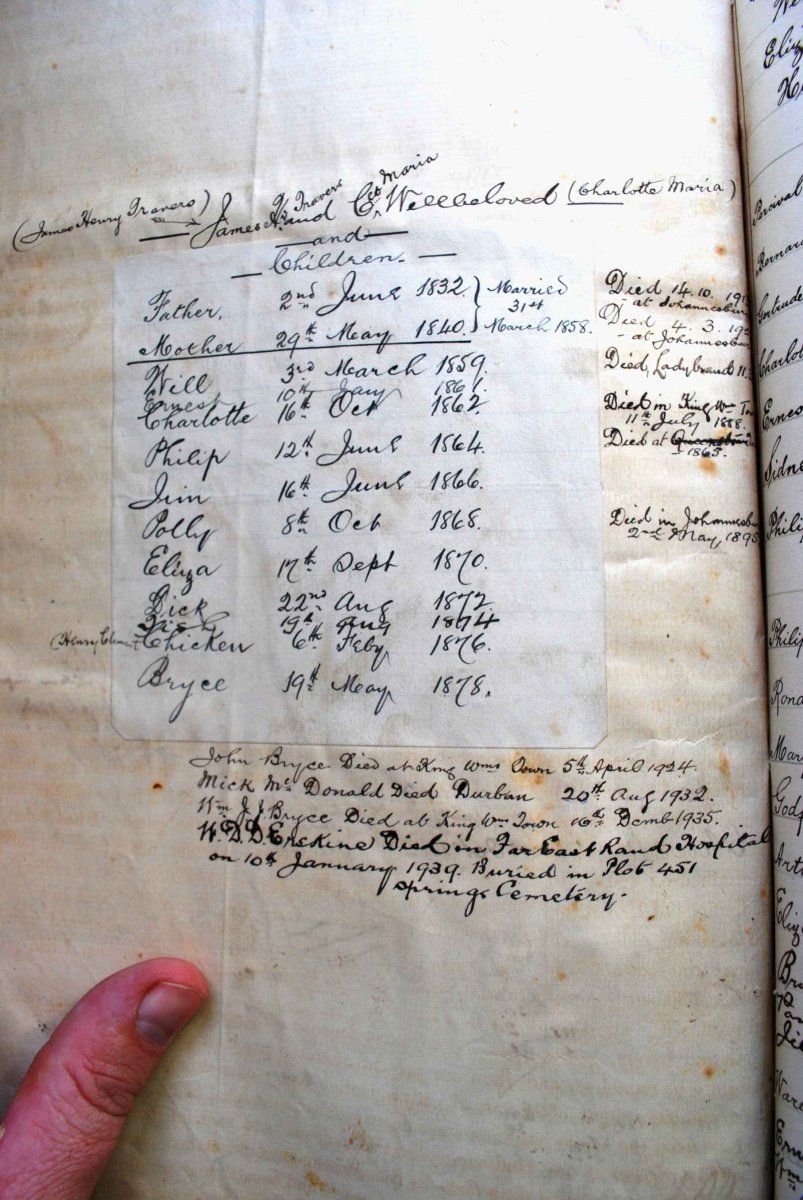 (James Henry Travers) James H. Travers and C. Maria Wellbeloved (Charlotte Maria)
and
Children.
Father, 2nd June 1832. Married Died 14.10.
31st - at Johannesburg
Mother 29th May 1840. March 1858. Died 4. 3.
- at Johannesbu
Will 3rd March 1859. Died, Ladybrand 11.
Ernest 10th Jany 1861.
Charlotte 16th Oct 1862. Died in King Wm Town
11th July 1888.
Philip 12th June 1864. Died at
1865.
Jim 16th June 1866.
Polly 8th Oct 1868. Died in Johannesbu
2nd May, 1895
Eliza 17th Sept 1870.
Dick 22nd Aug 1872.
19th Aug 1874
(Henry Clement) Chicken 6th Feby 1876.
Bryce 19th May 1878.
John Bryce Died at King Wms Town 5th April 1924.
Mick Mc Donald Died Durban 20th Aug 1932.
Wm J. J. Bryce Died at King Wm Town 16th Dcmb 1935.
W. D. D. Erskine Died in Far East Rand Hospital
on 10th January 1939. Buried in Plot 451
Springs Cemetery.
Eliz
Percival
Bernar
Gertrude
Charlot
Ernes
Sidne
Philip
Philip
Rona
Mar
Godf
Art
Eliz
Br